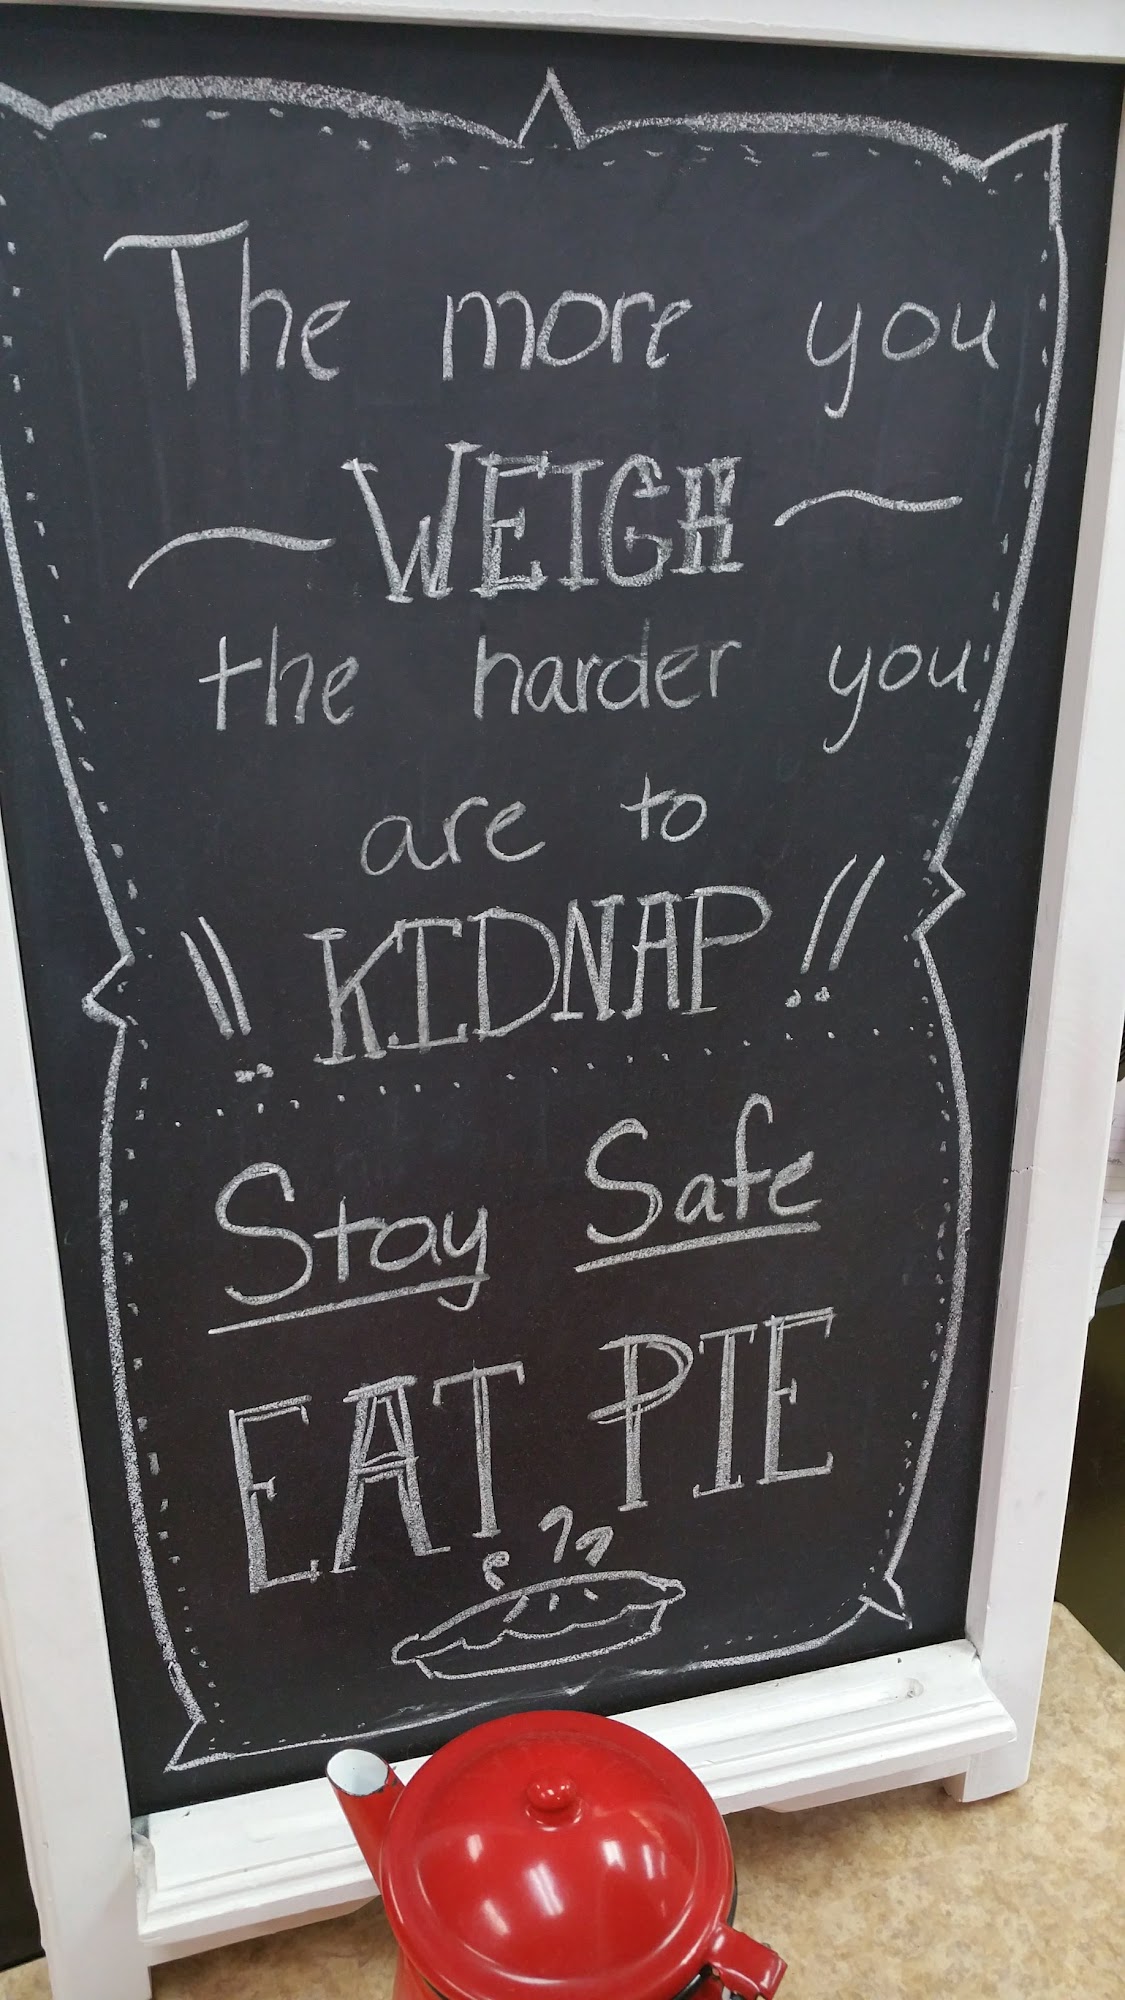 The more you
~ WEIGH ~
the harder you
are to
!! KIDNAP !!
Stay Safe
EAT PIE